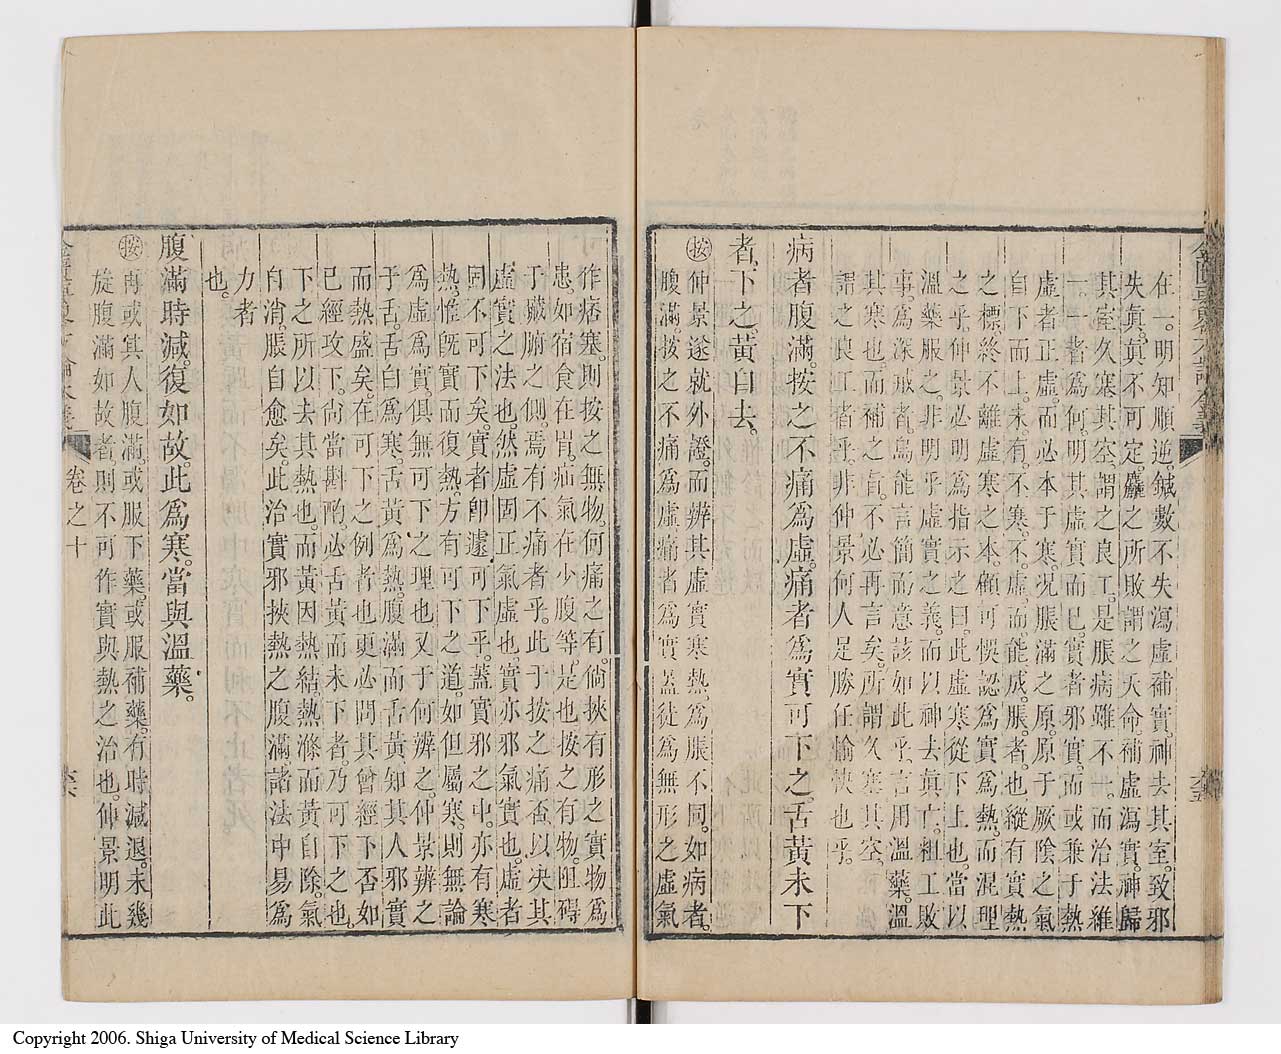 在一。明知順逆。鍼數不失。瀉虛補實。神去其室。致邪
失眞。眞不可定。麤之所敗。謂之夭命。補虛瀉實。神歸
其室。久塞其空。謂之良工。是脹病雖不一。而治法維
一。一者爲何。明其虛實而已。實者邪實。而或兼于熱
虛者正虛。而必本于寒。况脹滿之原。原于厥陰之氣
自下而上。未有不寒。不虛。而能成脹者也。縱有實熱
之標。終不離虛寒之本。顧可悞認爲實爲熱。而混理
之乎。仲景必明爲指示之曰。此虛寒從下上也。當以
溫藥服之。非明乎虛實之義。而以神去眞亡。粗工敗
事。爲深戒者。烏能言簡而意該如此乎。言用溫藥。溫
其寒也。而補之旨。不必再言矣。所謂久塞其空。
謂之良工者乎。非仲景何人足勝任愉快也乎。
病者腹滿。按之不痛爲虛。痛者爲實可下之。舌黃未下
者。下之。黃自去。
按仲景遂就外證。而辨其虛實寒熱。爲脹不同。如病者。
腹滿。按之不痛爲虛。痛者爲實。蓋徒爲無形之虛氣
作痞塞。則按之無物。何痛之有。倘挾有形之實物爲
患。如宿食在胃。疝氣在少腹等。是也。按之有物。阻碍
于臟腑之側。焉有不痛者乎。此于按之痛否。以决其
虛實之法也。然虛固正氣虛也。實亦邪氣實也。虛者
固不可下矣。實者卽遽可下乎。蓋實邪之中。亦有寒
熱。惟旣實而復熱。方有可下之道。如但屬寒。則無論
爲虛爲實。俱無可下之理也。又于何辨之。仲景辨之
于舌。舌白爲寒。舌黃爲熱。腹滿而舌黃。知其人邪實
而熱盛矣。在可下之例者也。更必問其曾經下否。如
已經攻下。尚當斟酌。必舌黃而未下者。乃可下之也。
下之所以去其熱也。而黃因熱結。熱滌而黃自除。氣
自消。脹自愈矣。此治實邪挾熱之腹滿。諸法中易爲
力者
也。
腹滿時減。復如故。此爲寒。當與溫藥。
按再或其人腹滿。或服下藥。或服補藥。有時減退。未幾
旋腹滿如故者。則不可作實與熱之治也。仲景明此
卷之十
Copyright 2006. Shiga University of Medical Science Library